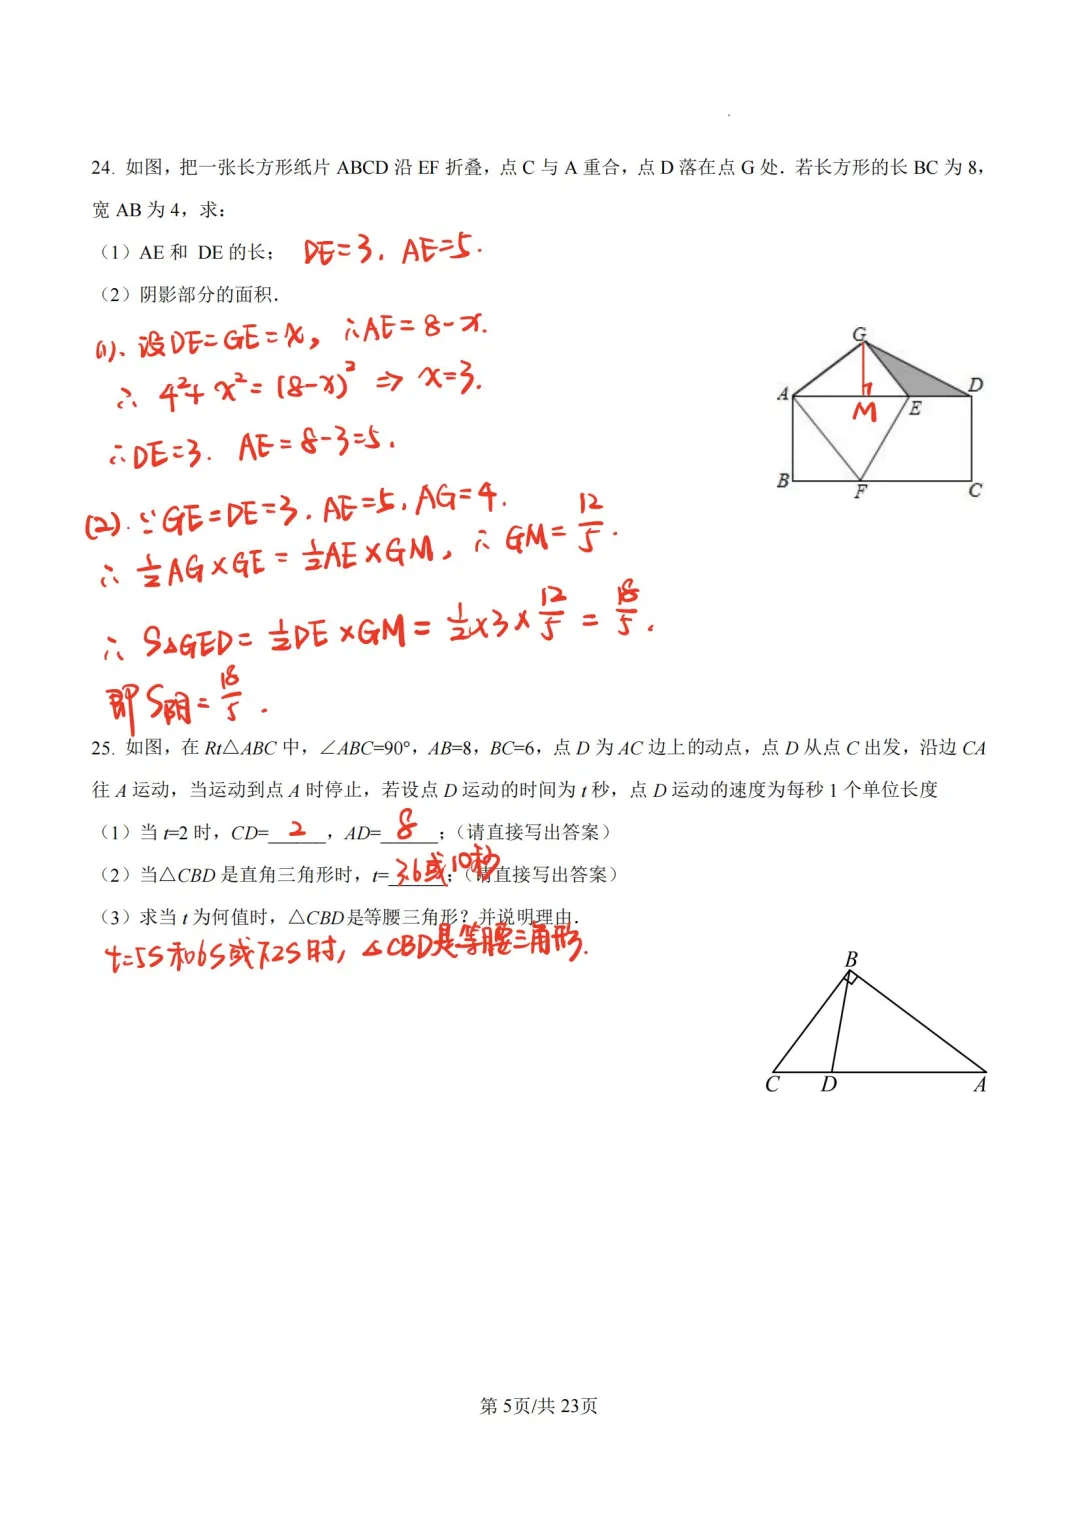 24. 如图，把一张长方形纸片 ABCD 沿 EF 折叠，点 C 与 A 重合，点 D 落在点 G 处．若长方形的长 BC 为 8，
宽 AB 为 4，求：
（1）AE 和 DE 的长； DE=3. AE=5.
（2）阴影部分的面积．
(1)、设DE=GE=x, ∴AE=8-x.
∴ 4²+x²=(8-x)² ⇒ x=3.
∴DE=3. AE=8-3=5.
(2). ∵GE=DE=3. AE=5, AG=4.
∴ ½AG×GE = ½AE×GM, ∴ GM=12/5.
∴ S△GED= ½DE×GM= ½×3×12/5 = 18/5.
即S阴=18/5.
G
A
M
E
D
B
F
C
25. 如图，在 Rt△ABC 中，∠ABC=90°，AB=8，BC=6，点 D 为 AC 边上的动点，点 D 从点 C 出发，沿边 CA
往 A 运动，当运动到点 A 时停止，若设点 D 运动的时间为 t 秒，点 D 运动的速度为每秒 1 个单位长度
（1）当 t=2 时，CD= 2 ，AD= 8 ；（请直接写出答案）
（2）当△CBD 是直角三角形时，t= 3.6或10秒；（请直接写出答案）
（3）求当 t 为何值时，△CBD 是等腰三角形？并说明理由．
t=5s和6s或7.2s时, △CBD是等腰三角形.
B
C
D
A
第 5页/共 23页